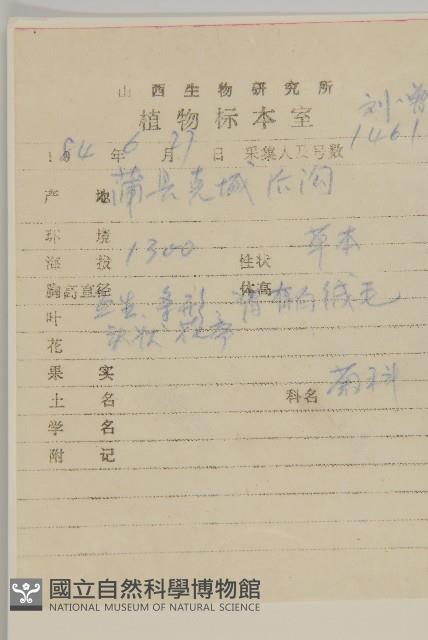 山西生物研究所
植物标本室
刘
1984年6月27日 采集人及号数 1461
产地 蒲县克城后沟
环境
海拔 1300 性状 草本
胸高直径 体高
叶 互生、条形 有白绒毛
花 头状花序
果实
土名 科名 菊科
学名
附记
國立自然科學博物館
NATIONAL MUSEUM OF NATURAL SCIENCE